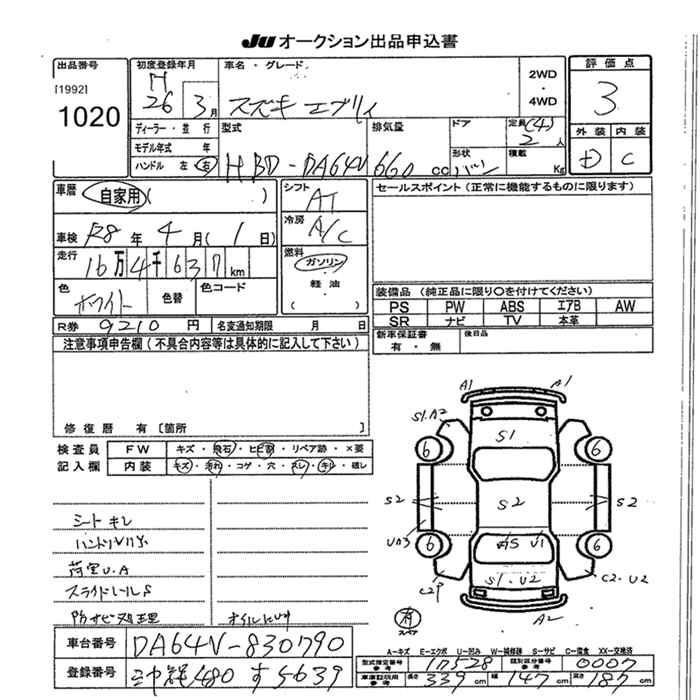 JU オークション出品申込書
出品番号 初度登録年月 車名・グレード 2WD 評価点
[1992] H
1020 26年 3月 スズキ エブリィ 4WD 3
ディーラー・並行 型式 排気量 ドア 定員 (4) 2 人 外装 内装
モデル年式 年 形状 積載 D C
ハンドル 左 右 HBD-DA64V 660 cc バン Kg
車歴 自家用( ) シフト AT セールスポイント(正常に機能するものに限ります)
車検 R8 年 4 月( 1 日) 冷房 A/C
走行 16万4千637 km 燃料 ガソリン
色 ホワイト 色替 色コード ・ 軽油 ( ) 装備品(純正品に限り○を付けてください)
PS PW ABS エアB AW
R券 9210 円 名変通知期限 月 日 SR ナビ TV 本革
注意事項申告欄(不具合内容等は具体的に記入して下さい) 新車保証書 有・無 後日品
修復歴 有〔箇所 〕
検査員 FW キズ・飛石・ヒビ割・リペア跡・×要
記入欄 内装 キズ・汚れ・コゲ・穴・スレ・キレ・破レ
A1 A1
S1.A2
S1
6 6
S2 S2 S2
シート キレ
UA3
AS U1
6 6
荷室U.A
C2P S1.U2 C2.U2
スライドレールS
防サビ処理
有 スペア A2
A-キズ E-エクボ U-凹み W-補修跡 S-サビ C-腐食 XX-交換済
車台番号 DA64V-830790
型式指定番号 参考 17528 類別区分番号 参考 0007
登録番号 480 す 5639
車庫証明用 参考 長さ 339 cm 幅 147 cm 高さ 187 cm